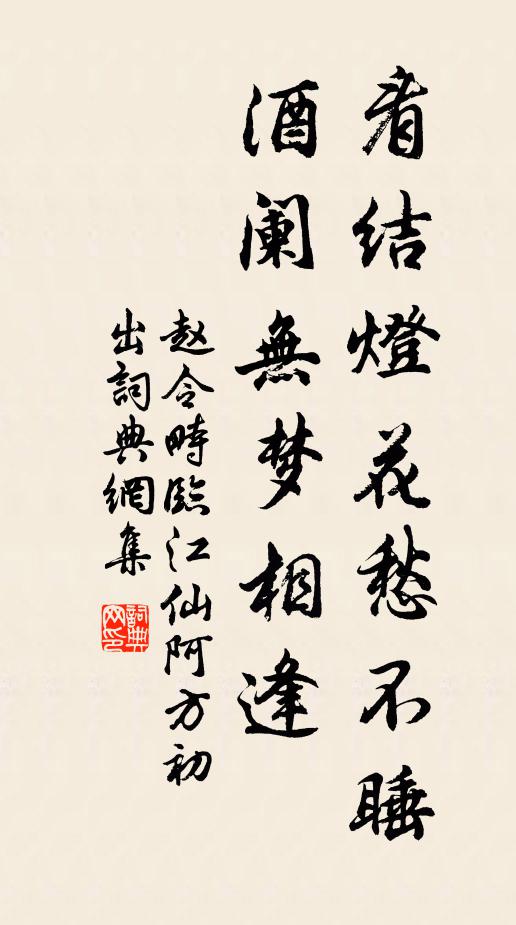 看结燈花愁不睡
酒阑無梦相逢
赵令畤臨江仙阿方初
出詞典網集
詞典
网印